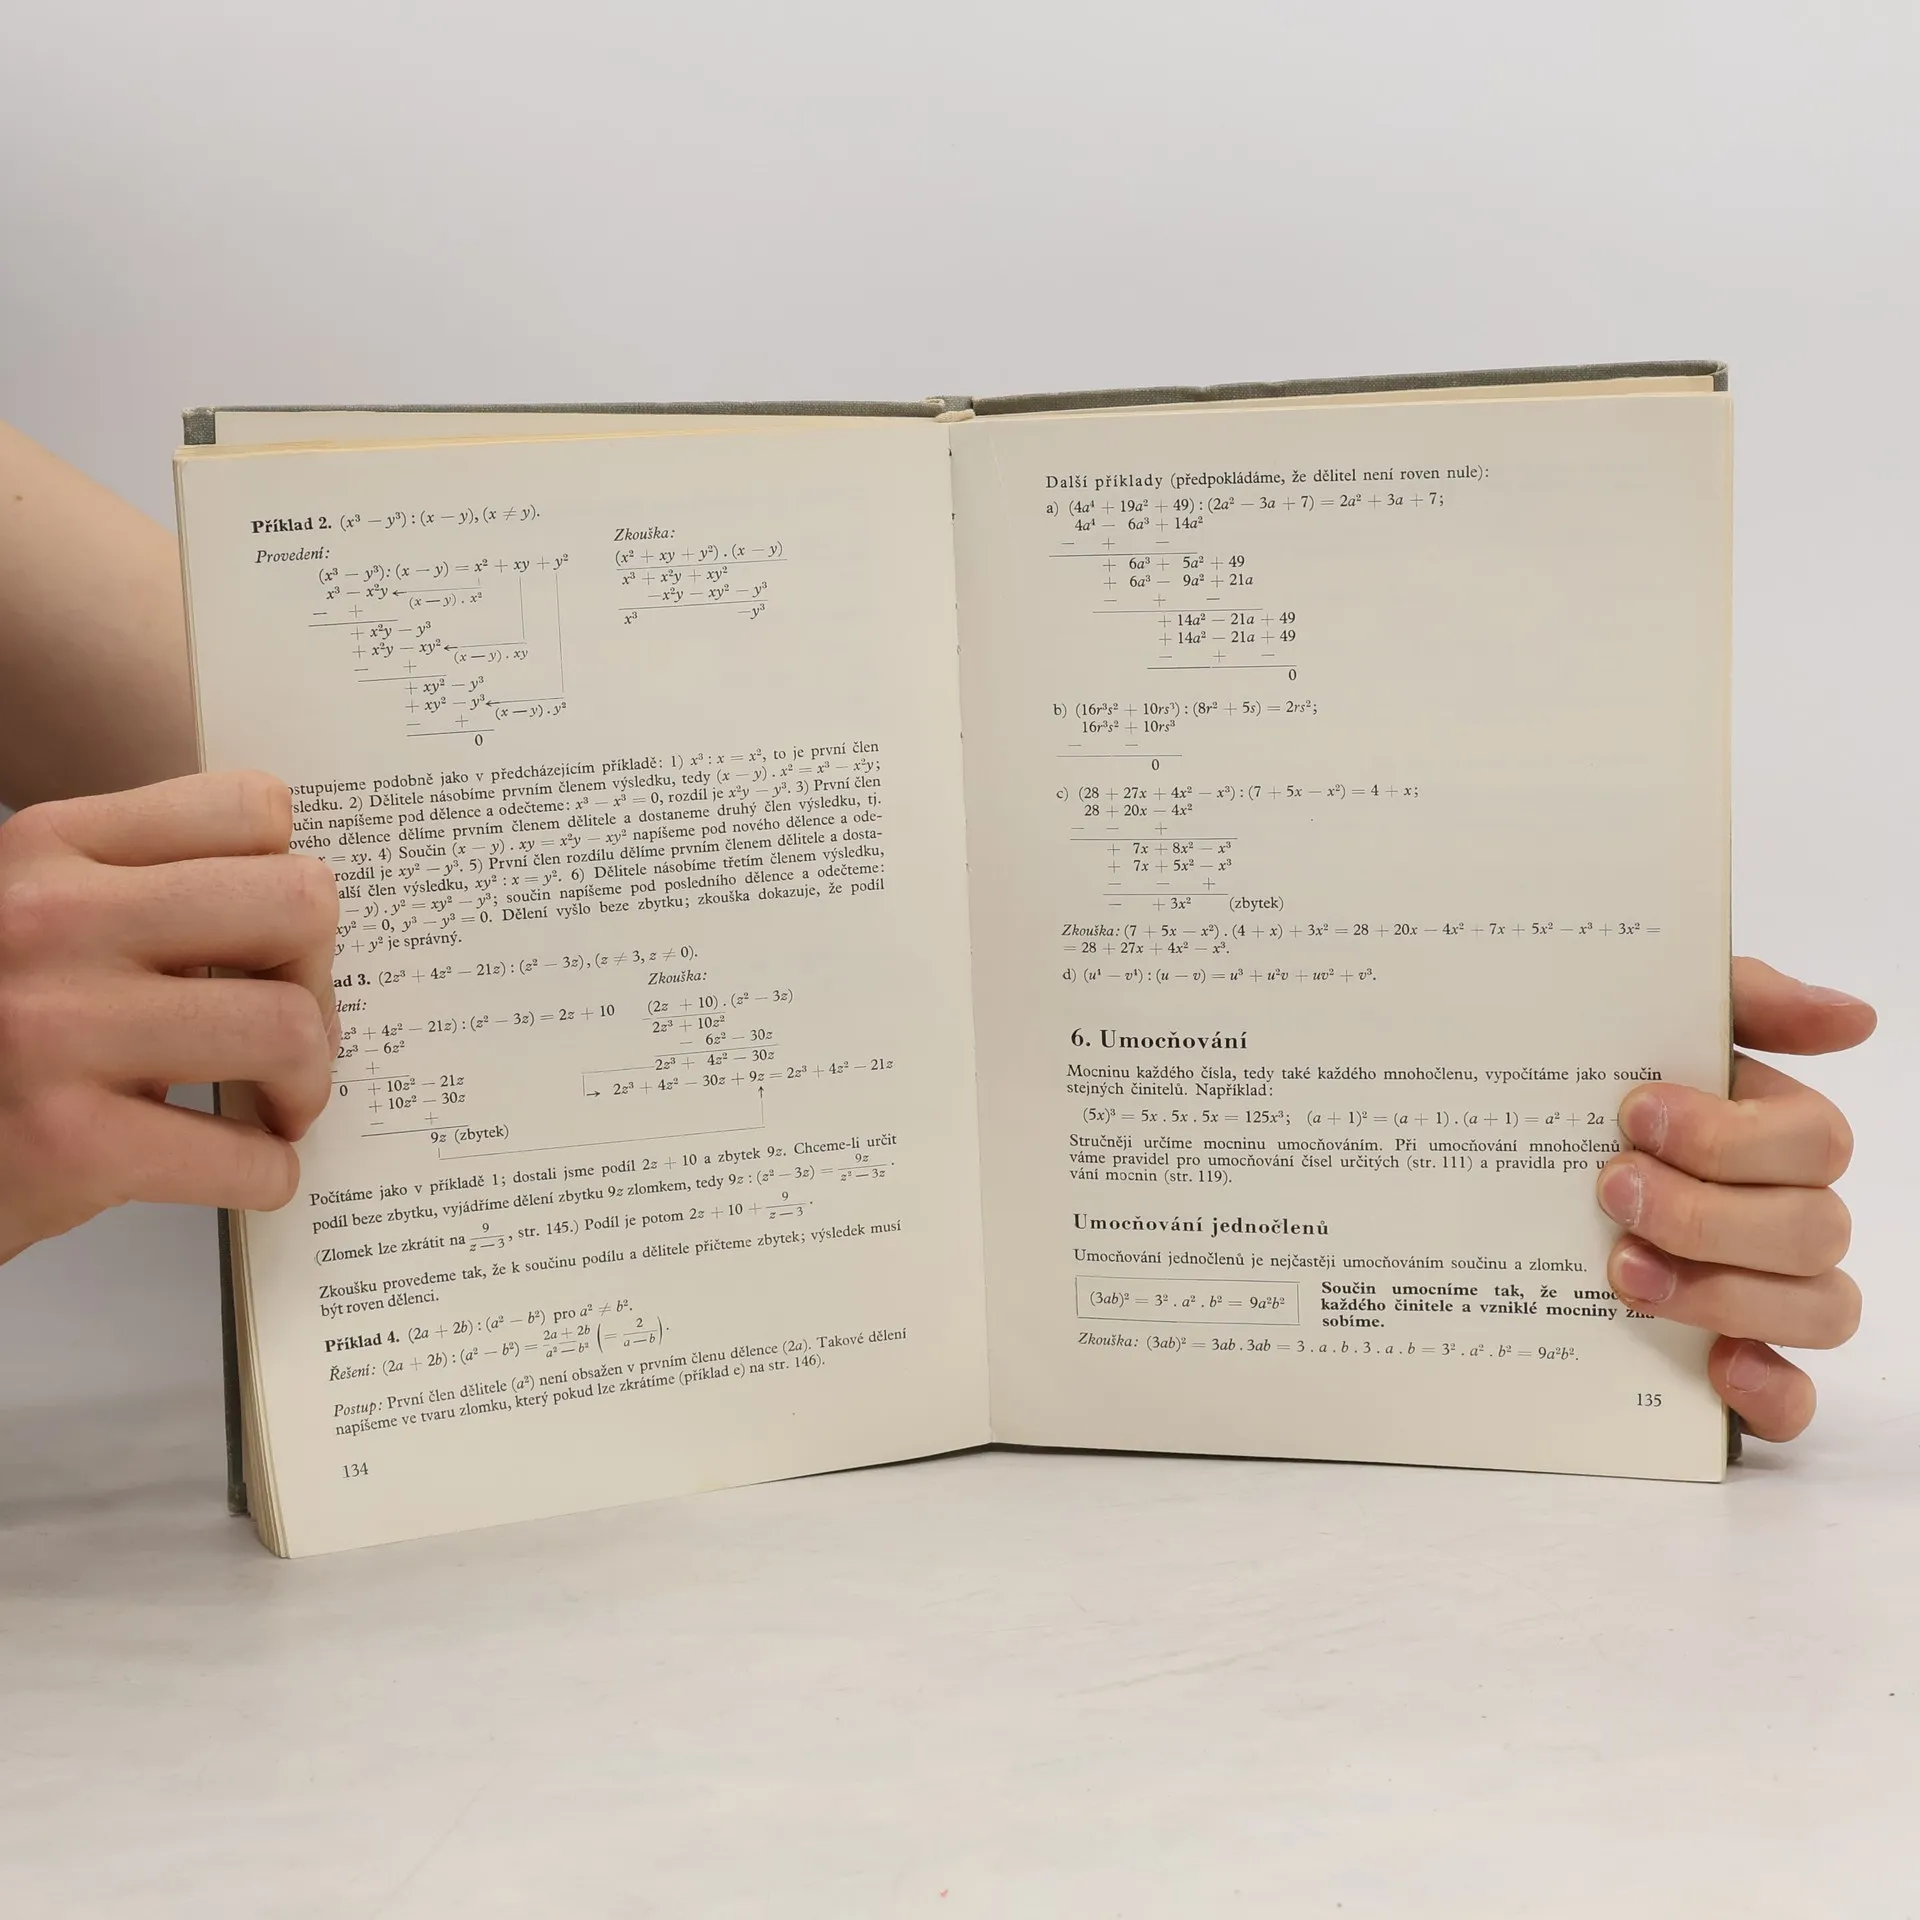 Příklad 2. (x³ — y³) : (x — y), (x ≠ y).
Provedení:
(x³ — y³) : (x — y) = x² + xy + y²
x³ — x²y
(x — y) . x²
— +
+ x²y — y³
+ x²y — xy²
(x — y) . xy
— +
+ xy² — y³
+ xy² — y³
(x — y) . y²
— +
0
Zkouška:
(x² + xy + y²) . (x — y)
x³ + x²y + xy²
—x²y — xy² — y³
x³ —y³
postupujeme podobně jako v předcházejícím příkladě: 1) x³ : x = x², to je první člen
sledku. 2) Dělitele násobíme prvním členem výsledku, tedy (x — y) . x² = x³ — x²y;
učin napíšeme pod dělence a odečteme: x³ — x³ = 0, rozdíl je x²y — y³. 3) První člen
ového dělence dělíme prvním členem dělitele a dostaneme druhý člen výsledku, tj.
x = xy. 4) Součin (x — y) . xy = x²y — xy² napíšeme pod nového dělence a ode-
rozdíl je xy² — y³. 5) První člen rozdílu dělíme prvním členem dělitele a dosta-
alší člen výsledku, xy² : x = y². 6) Dělitele násobíme třetím členem výsledku,
— y) . y² = xy² — y³; součin napíšeme pod posledního dělence a odečteme:
xy² = 0, y³ — y³ = 0. Dělení vyšlo beze zbytku; zkouška dokazuje, že podíl
y + y² je správný.
ad 3. (2z³ + 4z² — 21z) : (z² — 3z), (z ≠ 3, z ≠ 0).
dení:
z³ + 4z² — 21z) : (z² — 3z) = 2z + 10
2z³ — 6z²
+
0 + 10z² — 21z
+ 10z² — 30z
— +
9z (zbytek)
Zkouška:
(2z + 10) . (z² — 3z)
2z³ + 10z²
— 6z² — 30z
2z³ + 4z² — 30z
→ 2z³ + 4z² — 30z + 9z = 2z³ + 4z² — 21z
Počítáme jako v příkladě 1; dostali jsme podíl 2z + 10 a zbytek 9z. Chceme-li určit
podíl beze zbytku, vyjádříme dělení zbytku 9z zlomkem, tedy 9z : (z² — 3z) = 9z / z² — 3z.
(Zlomek lze zkrátit na 9 / z — 3, str. 145.) Podíl je potom 2z + 10 + 9 / z — 3.
Zkoušku provedeme tak, že k součinu podílu a dělitele přičteme zbytek; výsledek musí
být roven dělenci.
Příklad 4. (2a + 2b) : (a² — b²) pro a² ≠ b².
Řešení: (2a + 2b) : (a² — b²) = 2a + 2b / a² — b² (= 2 / a — b).
Postup: První člen dělitele (a²) není obsažen v prvním členu dělence (2a). Takové dělení
napíšeme ve tvaru zlomku, který pokud lze zkrátíme (příklad e) na str. 146).
134
Další příklady (předpokládáme, že dělitel není roven nule):
a) (4a⁴ + 19a² + 49) : (2a² — 3a + 7) = 2a² + 3a + 7;
4a⁴ — 6a³ + 14a²
— + —
+ 6a³ + 5a² + 49
+ 6a³ — 9a² + 21a
— + —
+ 14a² — 21a + 49
+ 14a² — 21a + 49
— + —
0
b) (16r³s² + 10rs³) : (8r² + 5s) = 2rs²;
16r³s² + 10rs³
— —
0
c) (28 + 27x + 4x² — x³) : (7 + 5x — x²) = 4 + x;
28 + 20x — 4x²
— — +
+ 7x + 8x² — x³
+ 7x + 5x² — x³
— — +
— + 3x² (zbytek)
Zkouška: (7 + 5x — x²) . (4 + x) + 3x² = 28 + 20x — 4x² + 7x + 5x² — x³ + 3x² =
= 28 + 27x + 4x² — x³.
d) (u⁴ — v⁴) : (u — v) = u³ + u²v + uv² + v³.
6. Umocňování
Mocninu každého čísla, tedy také každého mnohočlenu, vypočítáme jako součin
stejných činitelů. Například:
(5x)³ = 5x . 5x . 5x = 125x³; (a + 1)² = (a + 1) . (a + 1) = a² + 2a +
Stručněji určíme mocninu umocňováním. Při umocňování mnohočlenů
váme pravidel pro umocňování čísel určitých (str. 111) a pravidla pro
vání mocnin (str. 119).
Umocňování jednočlenů
Umocňování jednočlenů je nejčastěji umocňováním součinu a zlomku.
(3ab)² = 3² . a² . b² = 9a²b²
Součin umocníme tak, že umoc
každého činitele a vzniklé mocniny
sobíme.
Zkouška: (3ab)² = 3ab . 3ab = 3 . a . b . 3 . a . b = 3² . a² . b² = 9a²b².
135